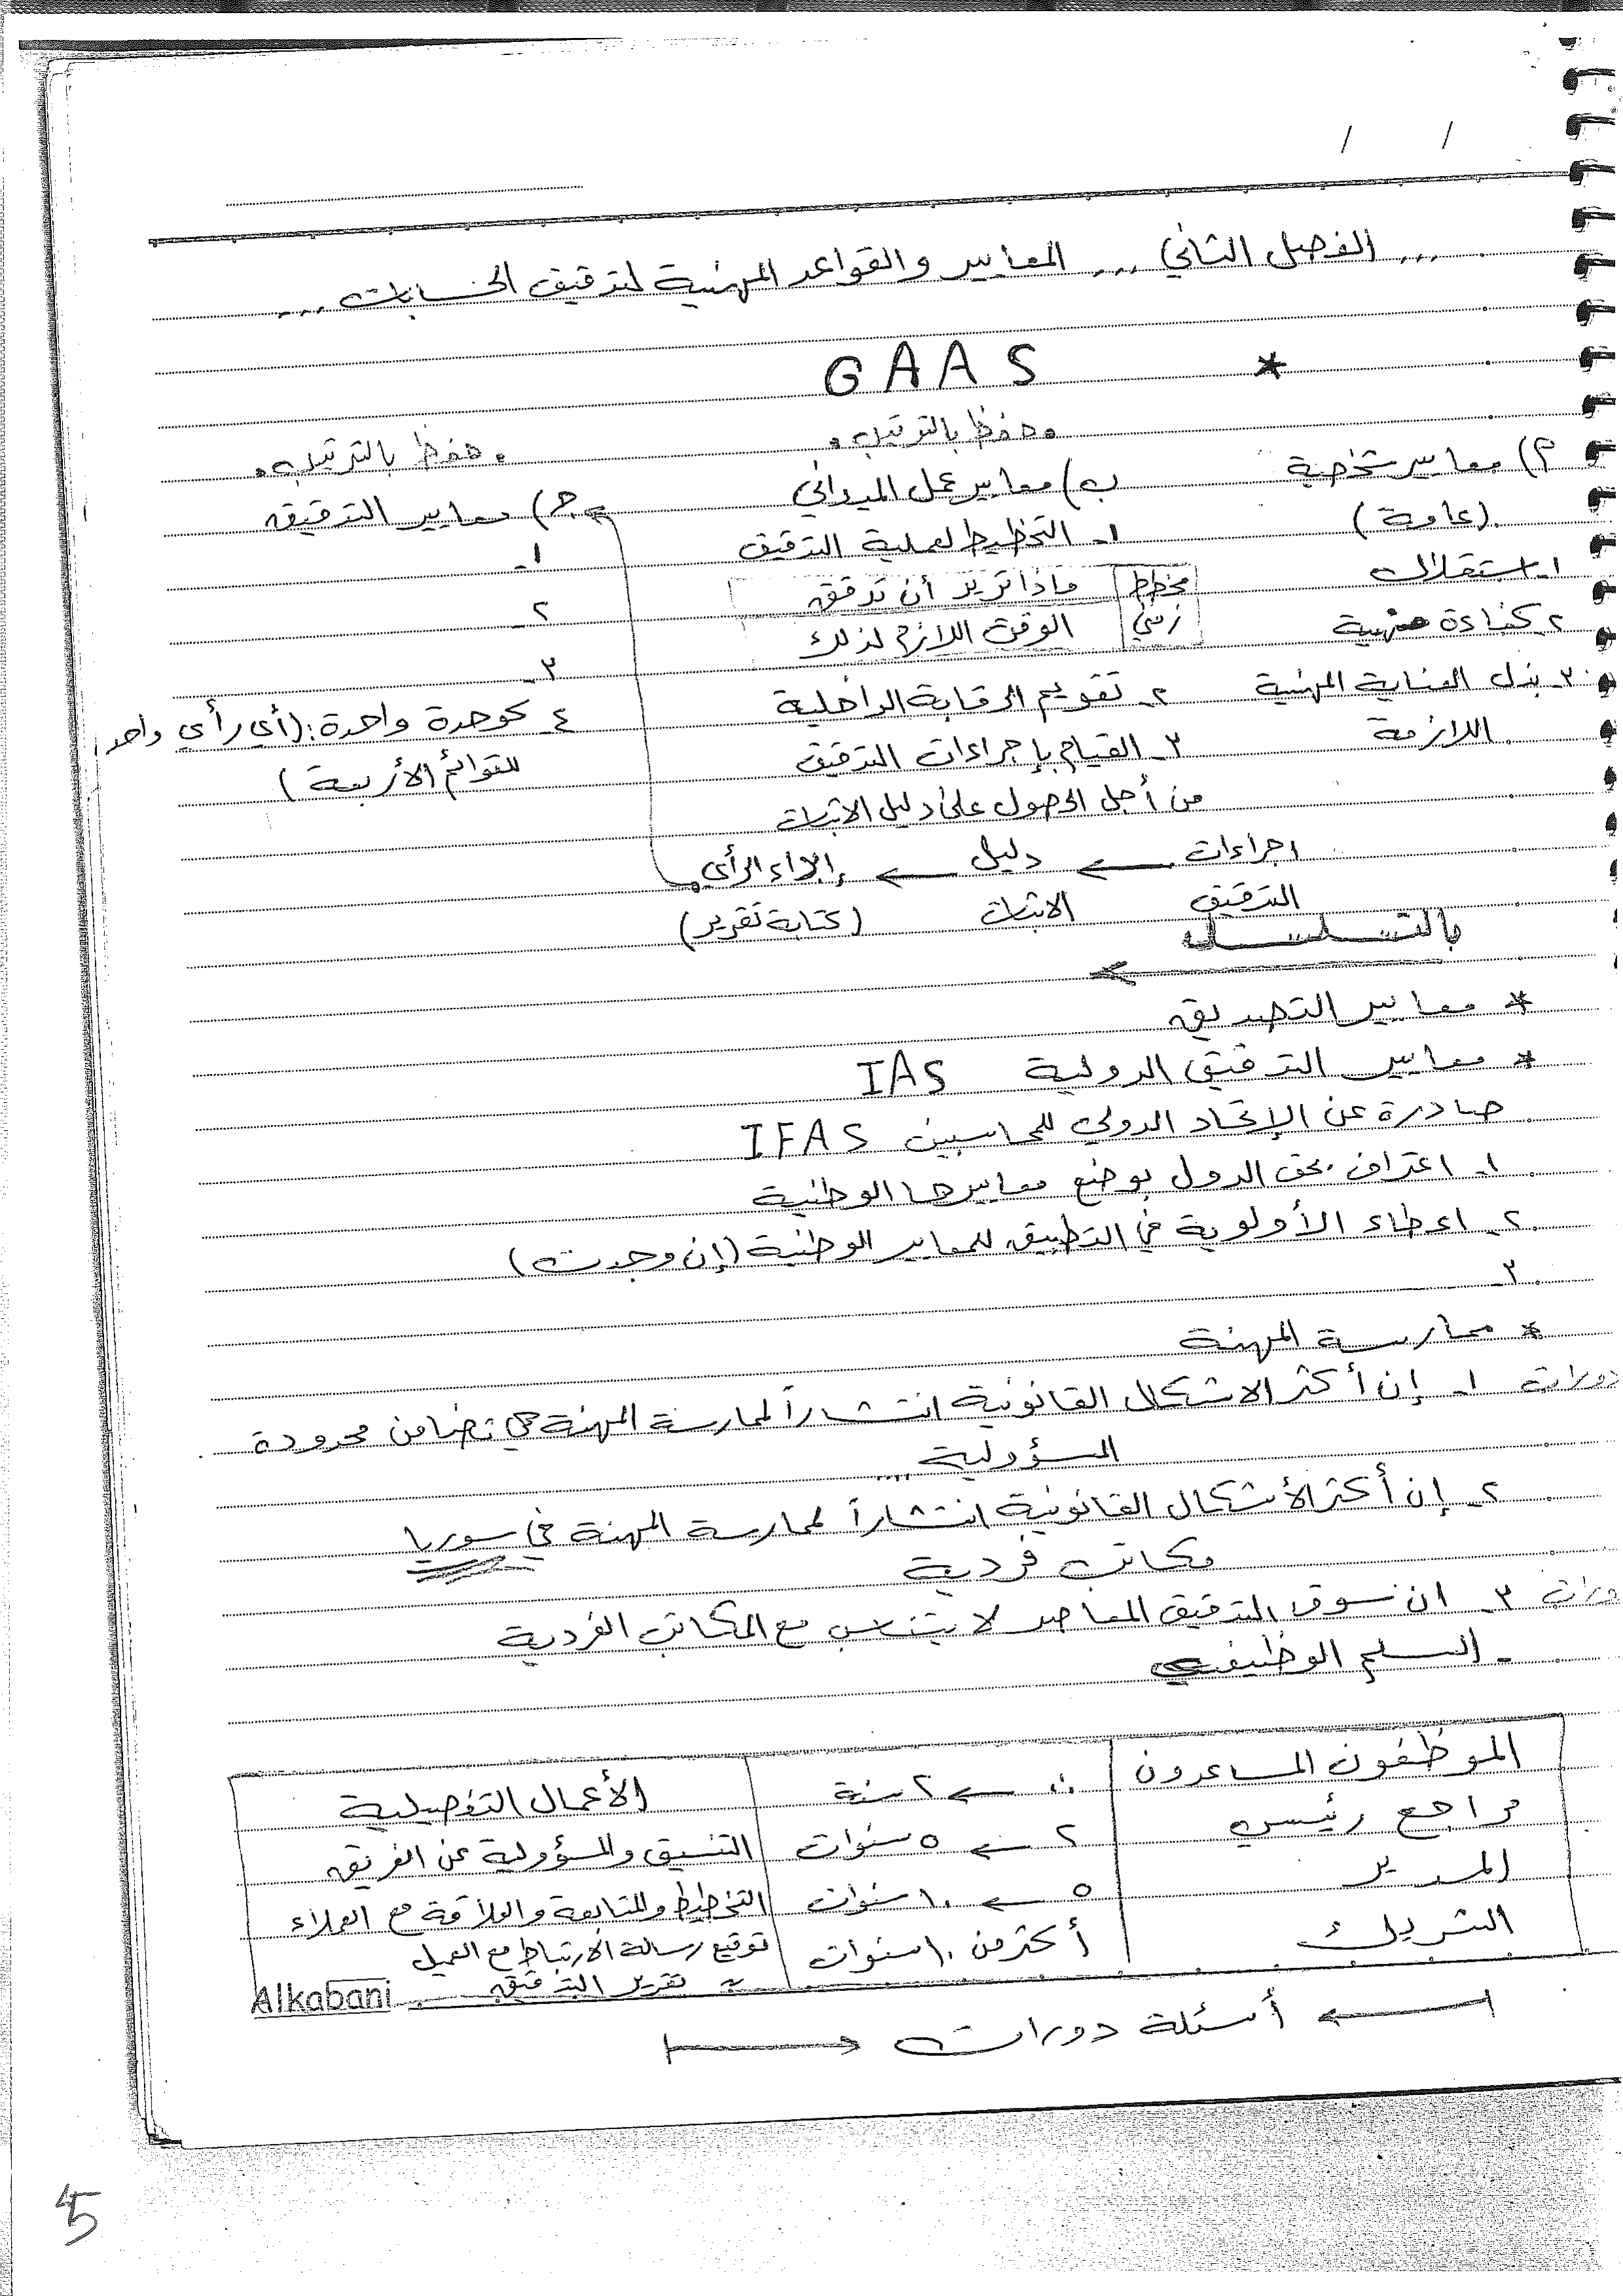 / /
... الفصل الثاني ... المعايير والقواعد المهنية لتدقيق الحسابات ...
* GAAS
أ) معايير شخصية
(عامة)
1- استقلال
2- كفاءة مهنية
3- بذل العناية المهنية
اللازمة
• حفظ بالترتيب •
ب) معايير عمل الميداني
1- التخطيط لعملية التدقيق
مخطط | ماذا تريد أن تدقق
زمني | الوقت اللازم لذلك
2- تقويم الرقابة الداخلية
3- القيام بإجراءات التدقيق
من أجل الحصول على دليل الاثبات
اجراءات ← دليل ← إبداء الرأي
التدقيق الاثبات (كتابة تقرير)
بالتسلسل
←
• حفظ بالترتيب •
ج) معايير التدقيق
1-
2-
3-
4- كوحدة واحدة: (أي رأي واحد
للقوائم الأربعة)
* معايير التصديق
* معايير التدقيق الدولية IAS
صادرة عن الإتحاد الدولي للمحاسبين IFAS
1- اعتراف بحق الدول بوضع معاييرها الوطنية
2- اعطاء الأولوية في التطبيق للمعايير الوطنية (إن وجدت)
3-
* ممارسة المهنة
دورات 1- إن أكثر الاشكال القانونية انتشاراً لممارسة المهنة هي تضامن محدودة
المسؤولية ....
2- إن أكثر الأشكال القانونية انتشاراً لممارسة المهنة في سوريا
مكاتب فردية
دورات 3- ان سوق التدقيق المعاصر لا يتناسب مع المكاتب الفردية
- السلم الوظيفي
الموظفون المساعدون | ٠ ← ٢ سنة | الأعمال التفصيلية
مراجع رئيسي | ٢ ← ٥ سنوات | التنسيق والمسؤولية عن الفريق
المدير | ٥ ← ١٠ سنوات | التخطيط والمتابعة والعلاقة مع العملاء
الشريك | أكثر من ١٠ سنوات | توقيع رسالة الارتباط مع العميل
~ تقرير التدقيق
Alkabani
← أسئلة دورات →
5